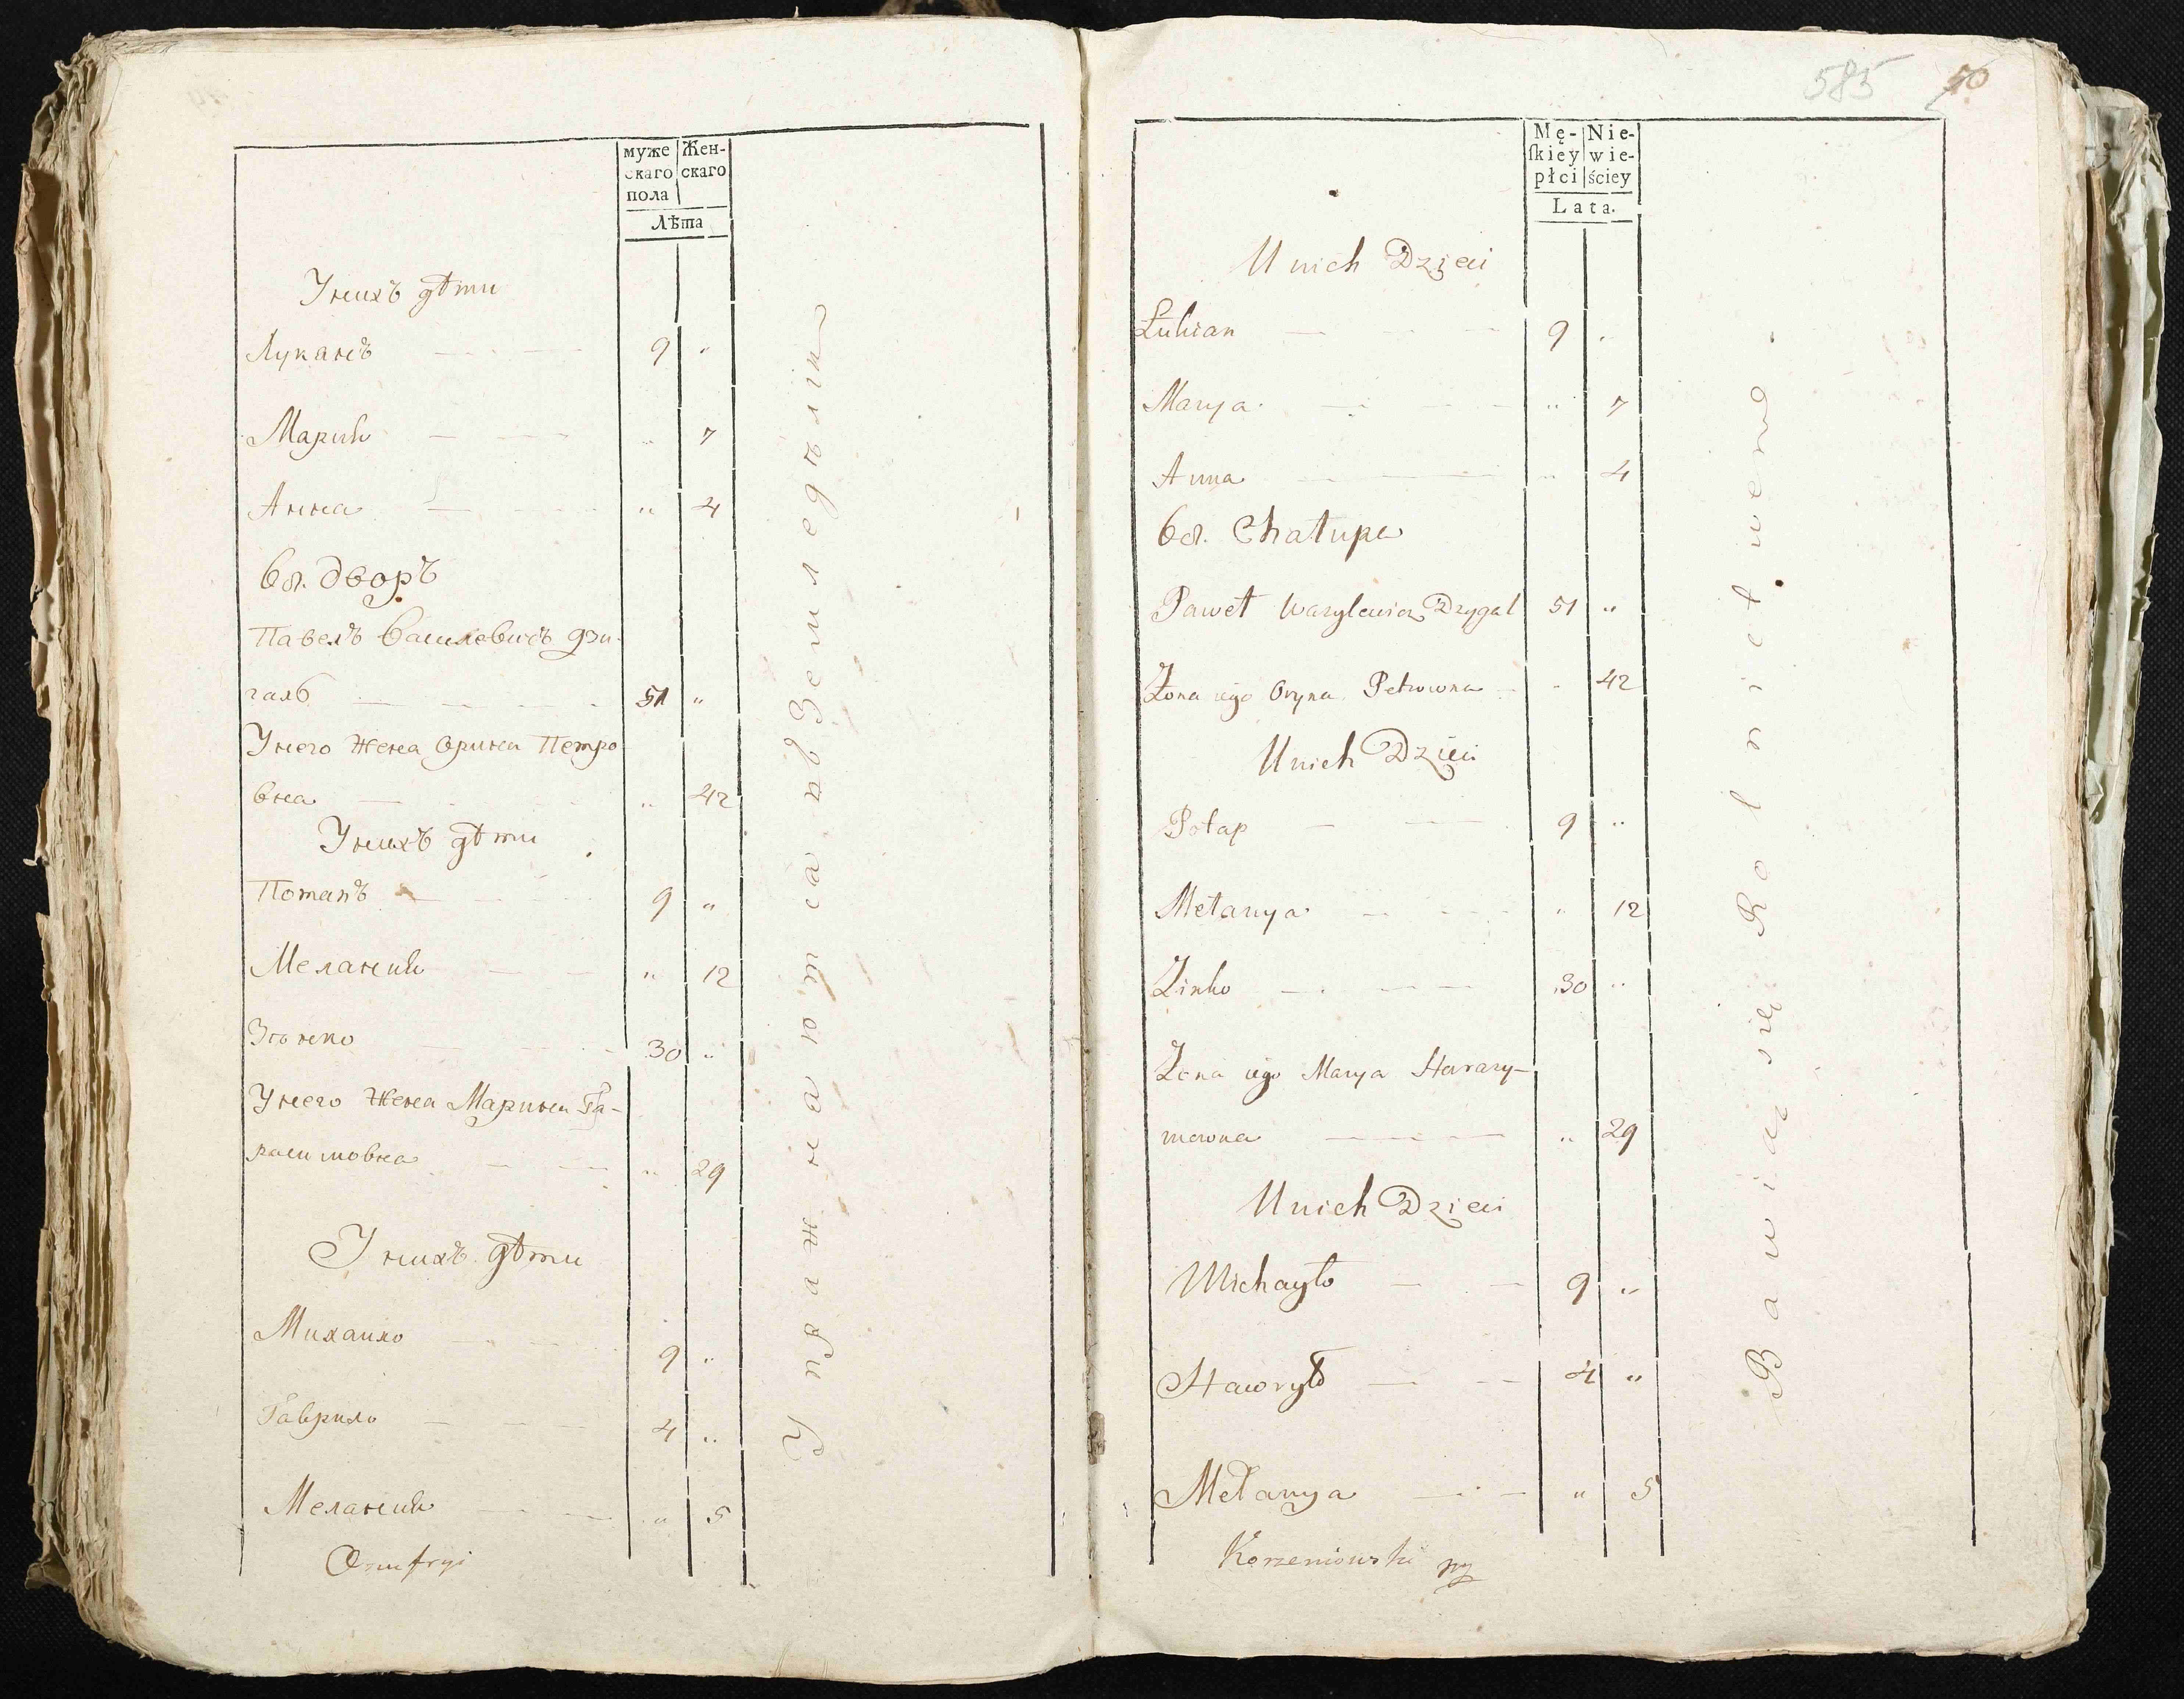 муже
скаго
пола
Жен-
скаго
Лѣта
Унихъ дѣти
Луканъ 9 "
Мария " 7
Анна " 4
68. дворъ
Павелъ Василевичъ дзи-
галъ 51 "
Унего жена Орина Петро
вна " 42
Унихъ дѣти
Потапъ 9 "
Мелания " 12
Зѣнко 30 "
Унего жена Марина Га-
расимовна " 29
Унихъ дѣти
Михаило 9 "
Гаврило 4 "
Мелания " 5
Упражнаютса въ Земледѣлии
Onufryi
585 50
Mę-
ſkiey
płci
Nie-
wie-
ściey
Lata.
U nich Dzieci
Łukian 9 "
Marya " 7
Anna " 4
68. Chałupa
Paweł Wasylewicz Dzygal 51 "
Żona iego Oryna Petrowna " 42
U nich Dzieci
Potap 9 "
Mełanya " 12
Zinko 30 "
Żona iego Marya Harasy-
mowna " 29
U nich Dzieci
Michayło 9 "
Hawryło 4 "
Mełanya " 5
Bawią się Rolnictwem
Korzeniowski